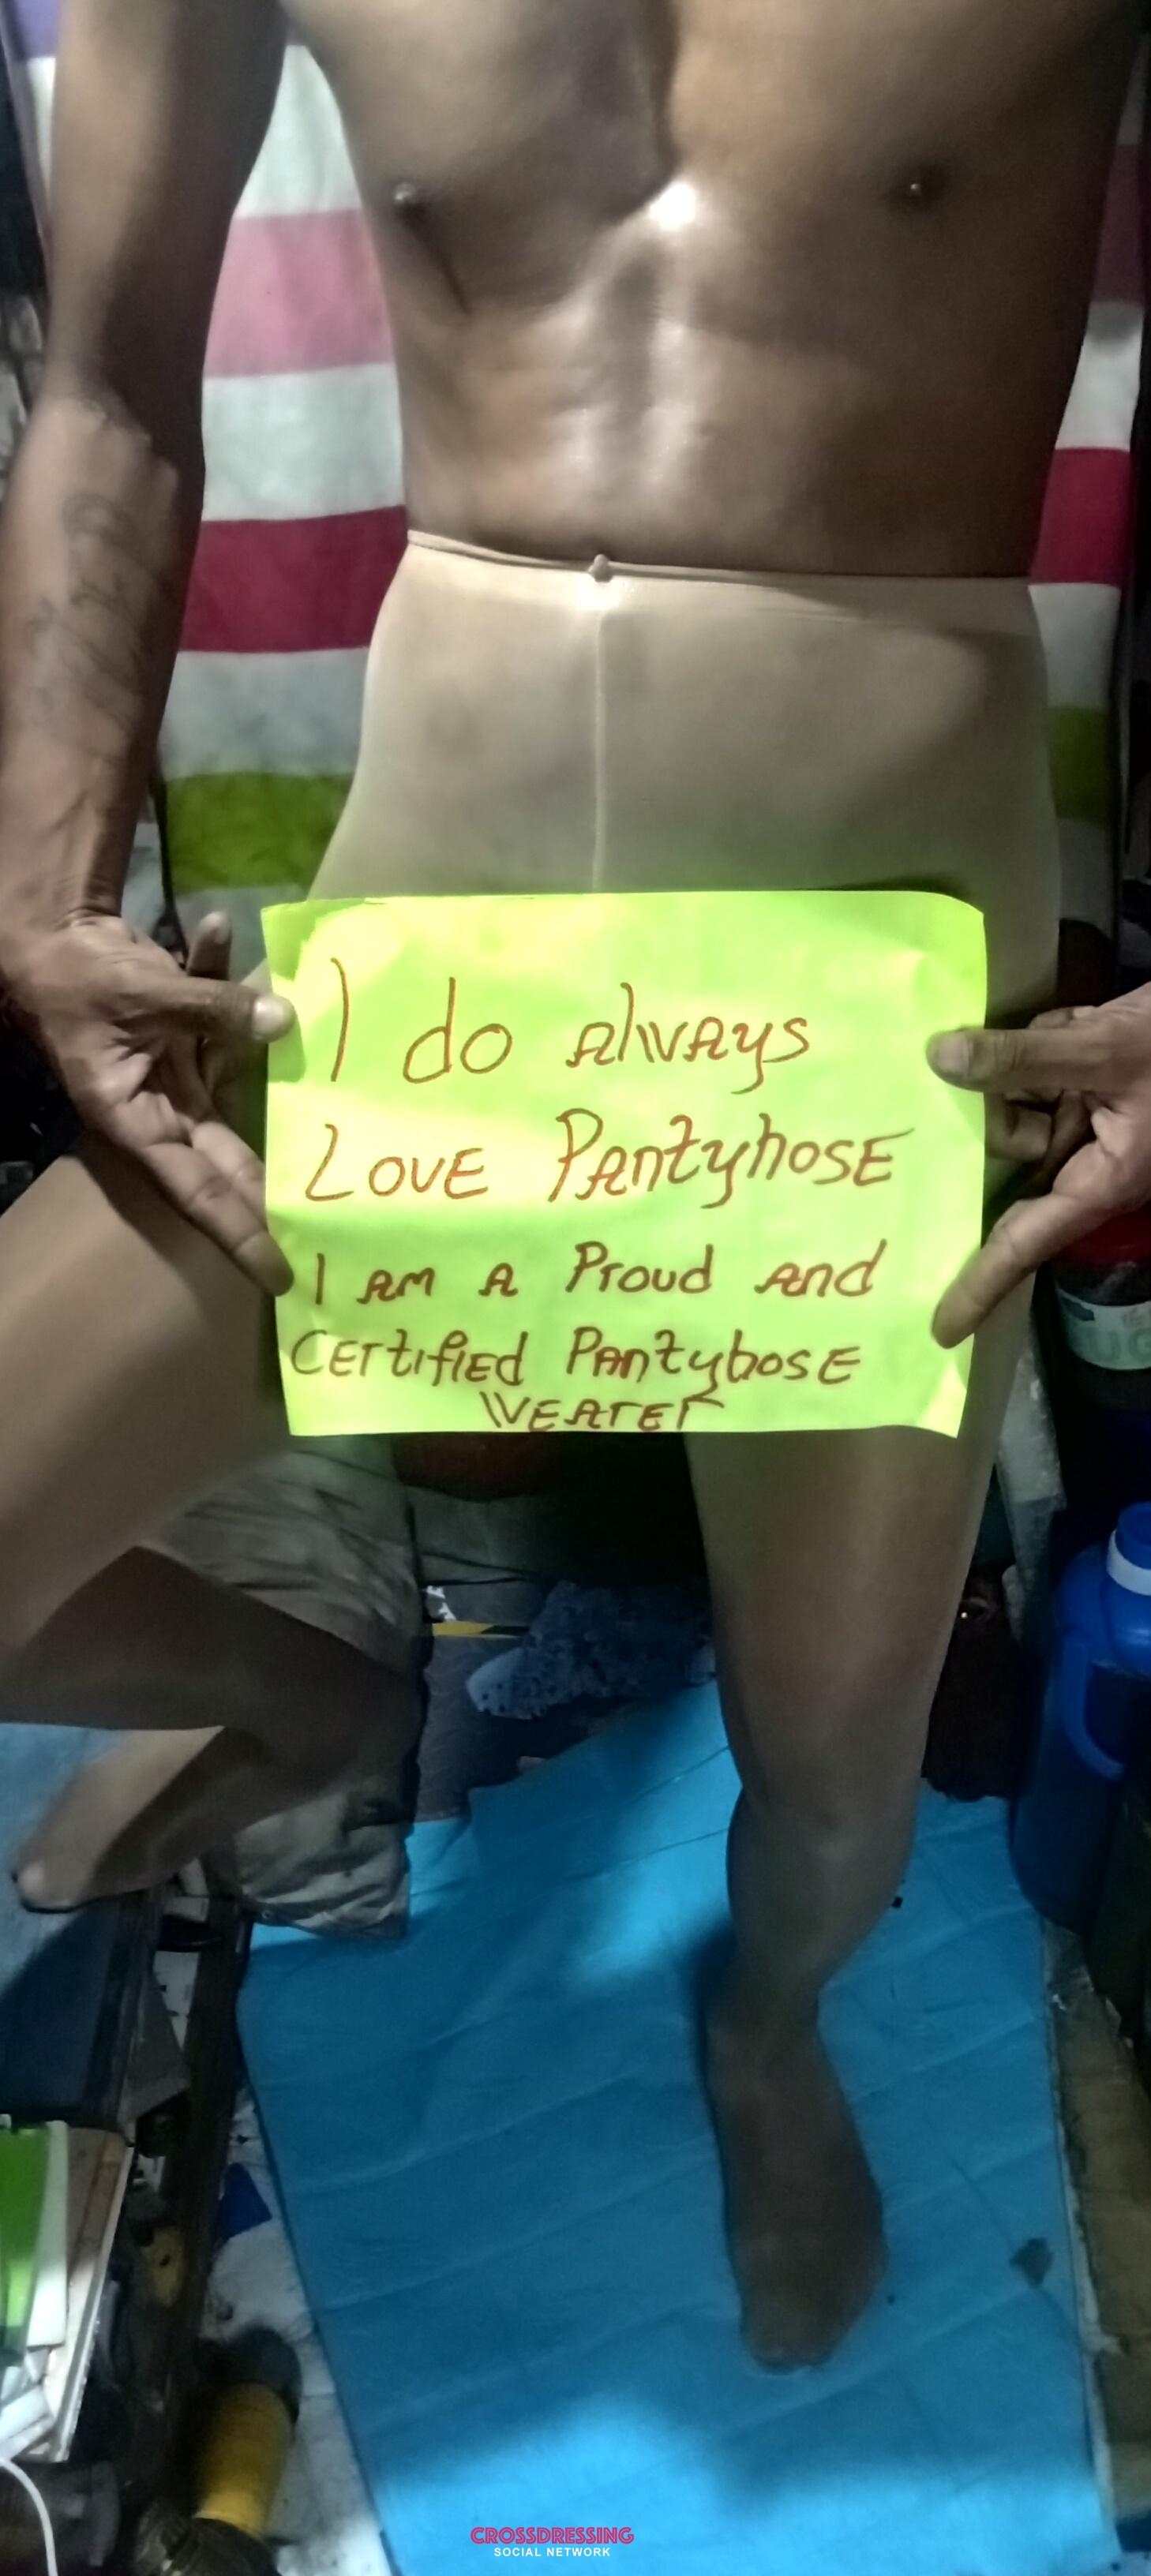 I do always
Love Pantyhose
I am a Proud and
Certified Pantyhose
Wearer
CROSSDRESSING
SOCIAL NETWORK